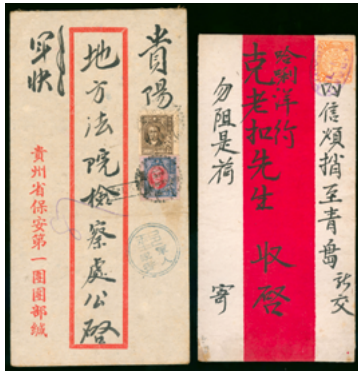 貴陽
地方法院檢察處公啓
快
貴州省保安第一團團部緘
內信煩捎至青島
祈交
哈唎洋行
克老扣先生 收啓
勿阻是荷
寄